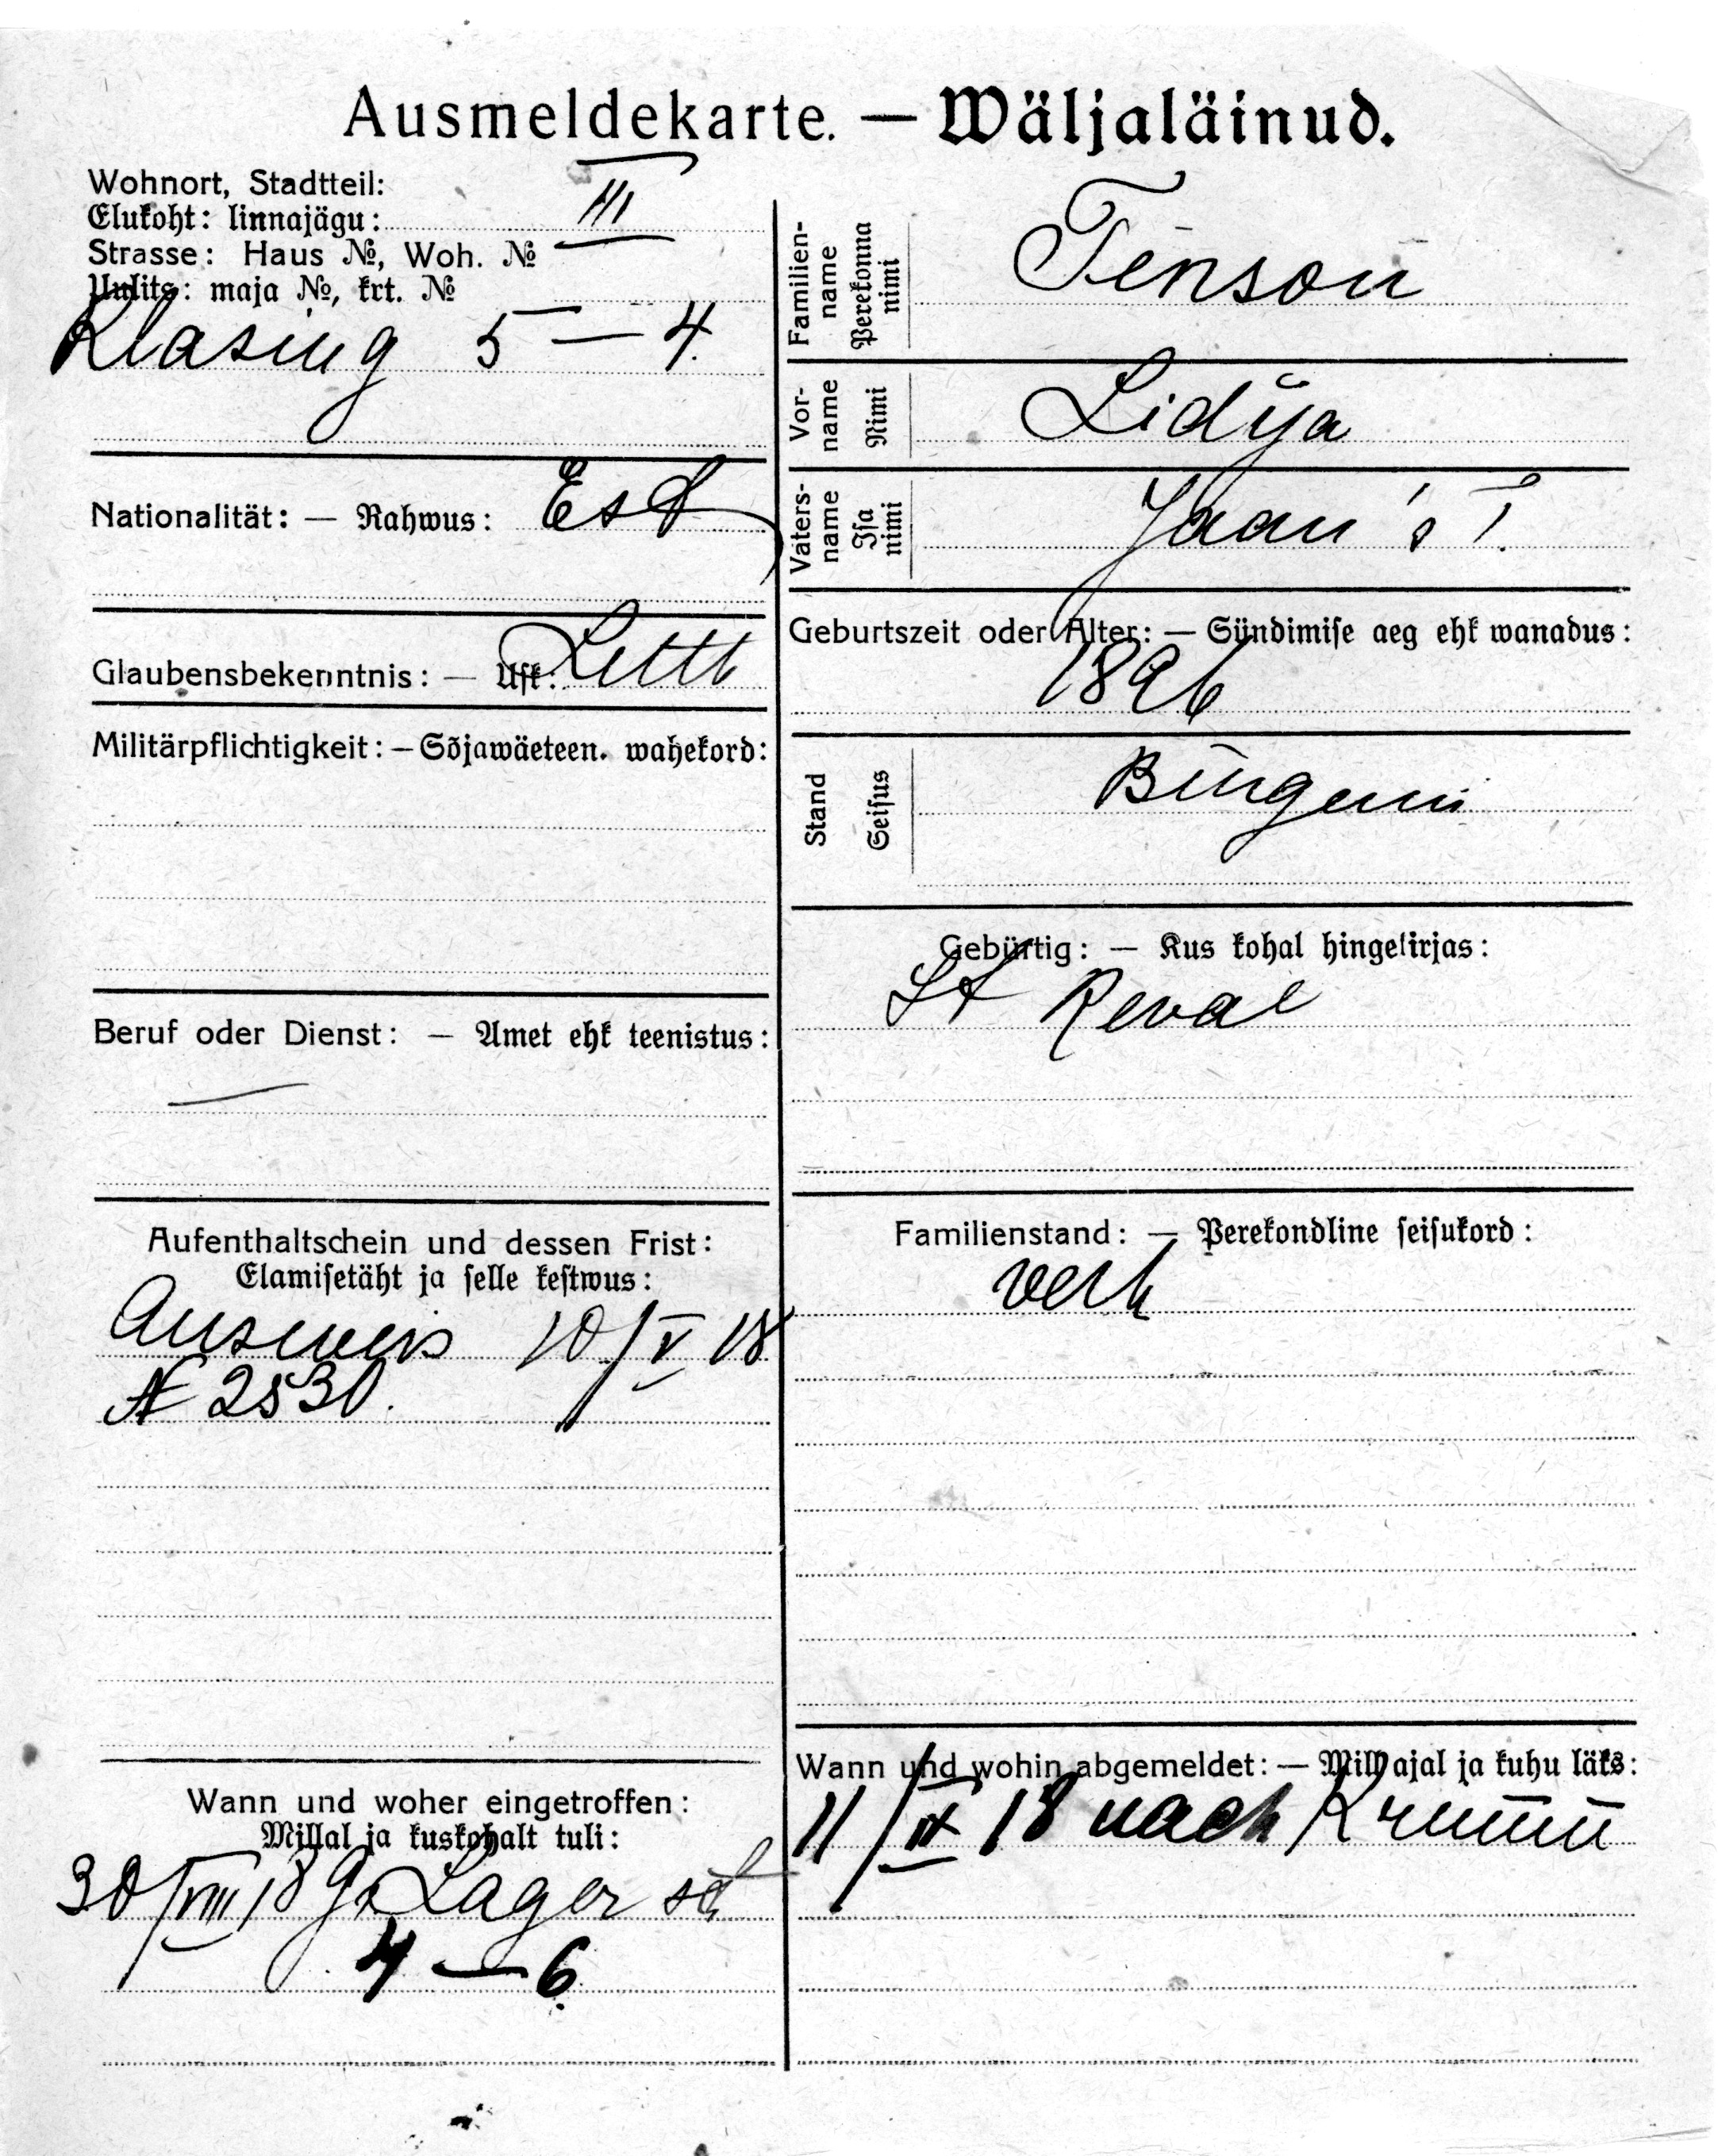 Ausmeldekarte. — Wäljaläinud.
Wohnort, Stadtteil:
Elukoht: linnajägu: III
Strasse: Haus №, Woh. №
Uulits: maja №, krt. №
Klasing 5 — 4.
Nationalität: — Rahwus: Est
Glaubensbekenntnis: — Usk: Luth
Militärpflichtigkeit: — Sõjawäeteen. wahekord:
Beruf oder Dienst: — Amet ehk teenistus:
—
Aufenthaltschein und dessen Frist:
Elamisetäht ja selle kestwus:
Ausweis 10/V 18
№ 2530.
Wann und woher eingetroffen:
Millal ja kuskohalt tuli:
30/VIII 18 Gr Lager st
4 — 6.
Familien-
name
Perekonna
nimi
Tenson
Vor-
name
Nimi
Lidya
Vaters-
name
Isa
nimi
Jaan's T.
Geburtszeit oder Alter: — Sündimise aeg ehk wanadus:
1896
Stand
Seisus
Bürgerin
Gebürtig: — Kus kohal hingekirjas:
St Reval
Familienstand: — Perekondline seisukord:
verh
Wann und wohin abgemeldet: — Mill ajal ja kuhu läks:
11/IX 18 nach